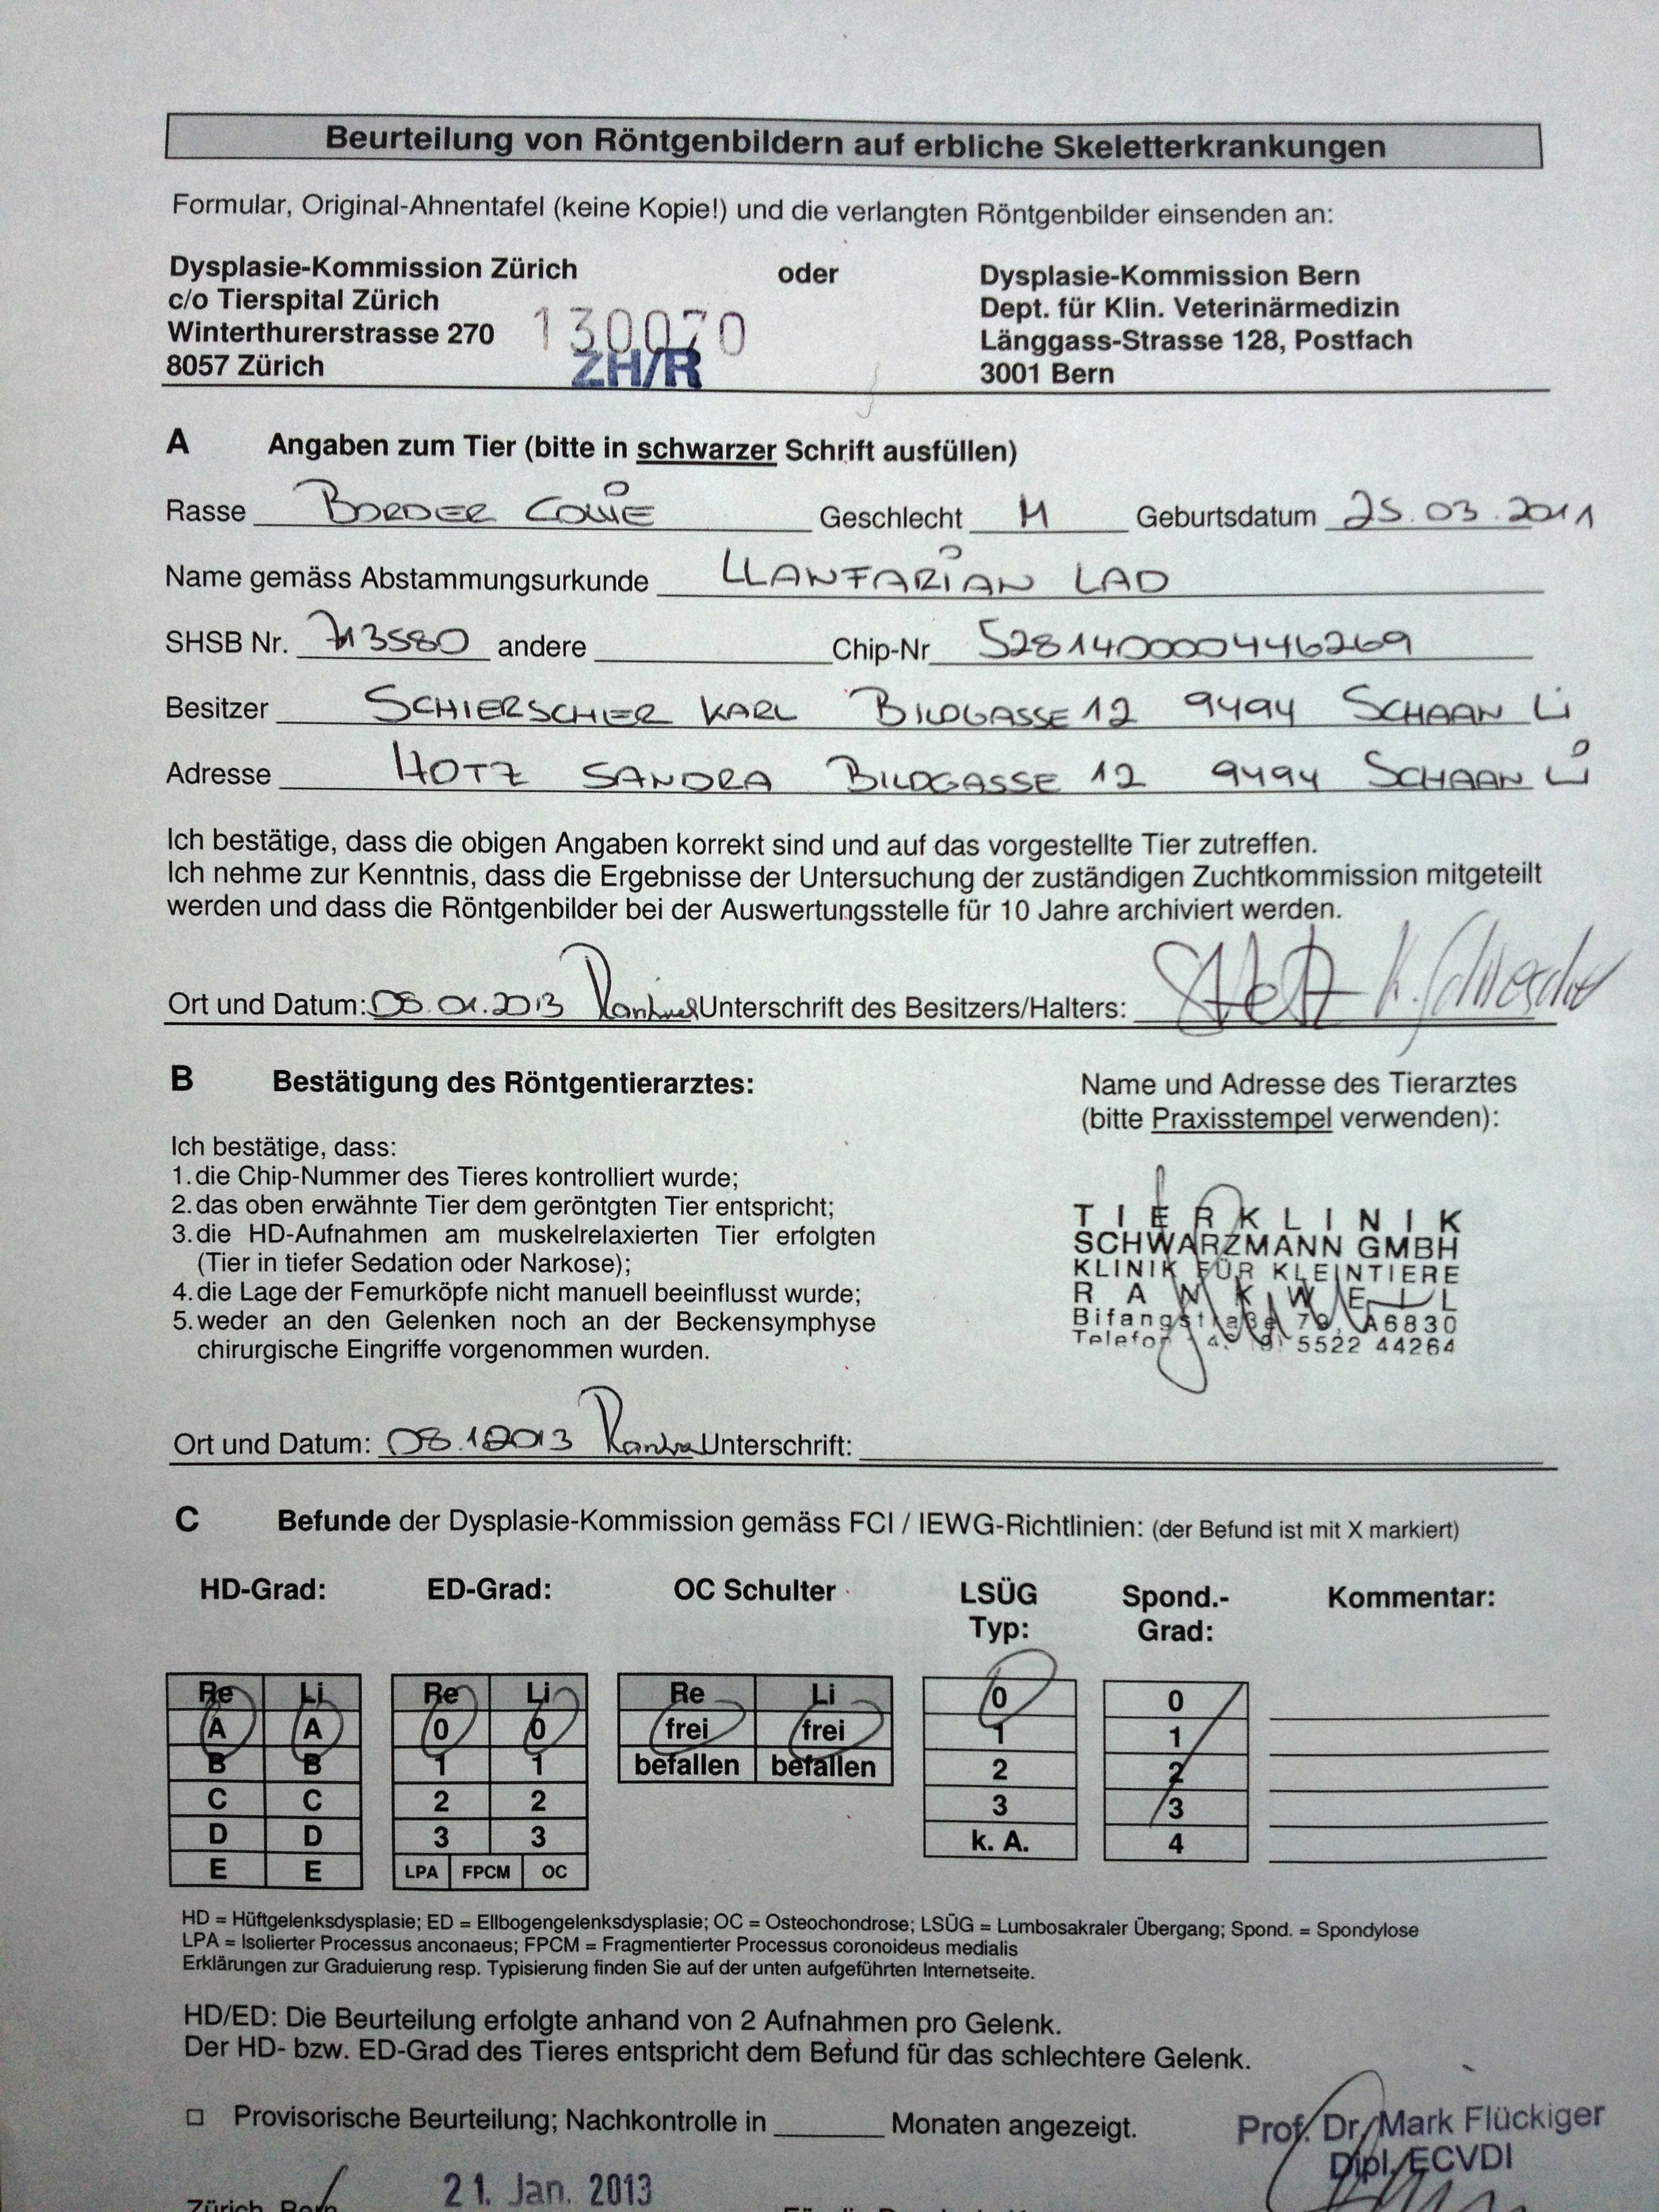 Beurteilung von Röntgenbildern auf erbliche Skeletterkrankungen
Formular, Original-Ahnentafel (keine Kopie!) und die verlangten Röntgenbilder einsenden an:
Dysplasie-Kommission Zürich oder Dysplasie-Kommission Bern
c/o Tierspital Zürich Dept. für Klin. Veterinärmedizin
Winterthurerstrasse 270 130070 Länggass-Strasse 128, Postfach
8057 Zürich ZH/R 3001 Bern
A Angaben zum Tier (bitte in schwarzer Schrift ausfüllen)
Rasse BORDER COLLIE Geschlecht M Geburtsdatum 25.03.2011
Name gemäss Abstammungsurkunde LLANFARIAN LAD
SHSB Nr. 713580 andere Chip-Nr 528140000446269
Besitzer SCHIERSCHER KARL BILDGASSE 12 9494 SCHAAN Li
Adresse HOTZ SANDRA BILDGASSE 12 9494 SCHAAN Li
Ich bestätige, dass die obigen Angaben korrekt sind und auf das vorgestellte Tier zutreffen.
Ich nehme zur Kenntnis, dass die Ergebnisse der Untersuchung der zuständigen Zuchtkommission mitgeteilt
werden und dass die Röntgenbilder bei der Auswertungsstelle für 10 Jahre archiviert werden.
Ort und Datum: 08.01.2013 Unterschrift des Besitzers/Halters:
B Bestätigung des Röntgentierarztes: Name und Adresse des Tierarztes
(bitte Praxisstempel verwenden):
Ich bestätige, dass:
1. die Chip-Nummer des Tieres kontrolliert wurde;
2. das oben erwähnte Tier dem geröntgten Tier entspricht;
3. die HD-Aufnahmen am muskelrelaxierten Tier erfolgten
(Tier in tiefer Sedation oder Narkose);
4. die Lage der Femurköpfe nicht manuell beeinflusst wurde;
5. weder an den Gelenken noch an der Beckensymphyse
chirurgische Eingriffe vorgenommen wurden.
TIERKLINIK
SCHWARZMANN GMBH
KLINIK FÜR KLEINTIERE
RANKWEIL
Bifangstraße A6830
Telefon 5522 44264
Ort und Datum: 08.1.2013 Unterschrift:
C Befunde der Dysplasie-Kommission gemäss FCI / IEWG-Richtlinien: (der Befund ist mit X markiert)
HD-Grad: ED-Grad: OC Schulter LSÜG Typ: Spond.-Grad: Kommentar:
Re Li Re Li Re Li 0 0
A A 0 0 frei frei 1 1
B B 1 1 befallen befallen 2 2
C C 2 2 3 3
D D 3 3 k. A. 4
E E LPA FPCM OC
HD = Hüftgelenksdysplasie; ED = Ellbogengelenksdysplasie; OC = Osteochondrose; LSÜG = Lumbosakraler Übergang; Spond. = Spondylose
LPA = Isolierter Processus anconaeus; FPCM = Fragmentierter Processus coronoideus medialis
Erklärungen zur Graduierung resp. Typisierung finden Sie auf der unten aufgeführten Internetseite.
HD/ED: Die Beurteilung erfolgte anhand von 2 Aufnahmen pro Gelenk.
Der HD- bzw. ED-Grad des Tieres entspricht dem Befund für das schlechtere Gelenk.
Provisorische Beurteilung; Nachkontrolle in Monaten angezeigt.
Prof. Dr. Mark Flückiger
Dipl. ECVDI
Zürich, Bern 21. Jan. 2013